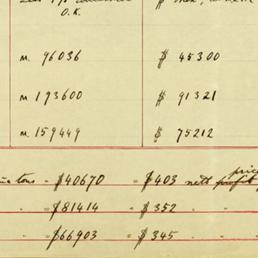 O.K.
m. 96036 $ 45300
m 193600 $ 91321
m. 159449 $ 75212
price
tons - $40670 = $403 nett profit
- $81414 = $352 " "
- $66903 = $345 " "